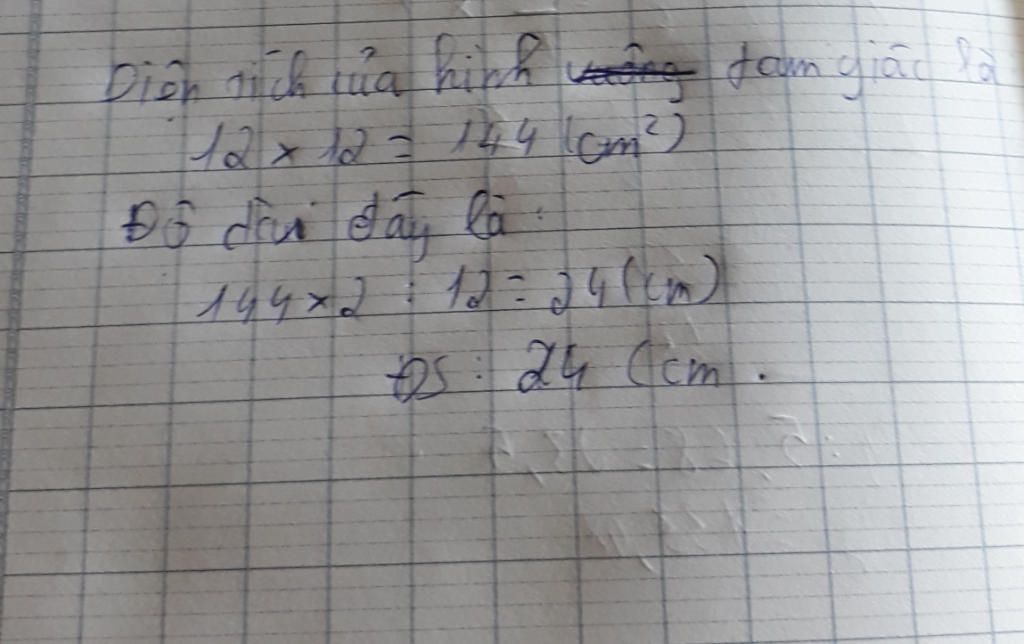 Diện tích của hình vuông tam giác là
12 × 12 = 144 (cm²)
Độ dài đáy là :
144 × 2 : 12 = 24 (cm)
ĐS : 24 (cm .